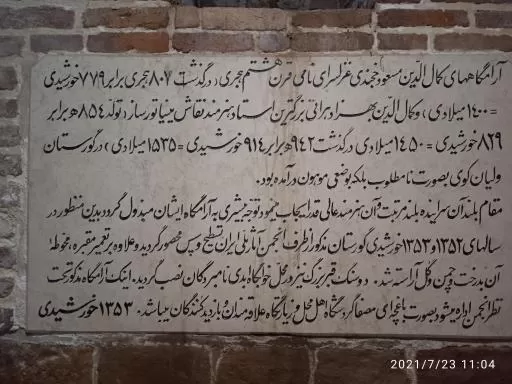 آرامگاههای کمال الدین مسعود خجندی غزلسرای نامی قرن هشتم هجری (درگذشت ۸۰۷ هجری برابر ۷۷۹ خورشیدی
= ۱۴۰۰ میلادی) و کمال الدین بهزاد هراتی بزرگترین استاد هنرمند نقاش مینیاتورساز (تولد ۸۵۴ ه برابر
۸۲۹ خورشیدی = ۱۴۵۰ میلادی درگذشت ۹۴۲ ه برابر ۹۱۴ خورشیدی = ۱۵۳۵ میلادی) در گورستان
ولیان کوی بصورت نامطلوب بلکه بوضعی موهون درآمده بود.
مقام بلند آن سراینده بلند مرتبت و آن هنرمند عالی قدر ایجاب مینمود توجه بیشتری به آرامگاه ایشان مبذول گردد بدین منظور در
سالهای ۱۳۵۲ و ۱۳۵۳ خورشیدی گورستان مذکور از طرف انجمن آثار ملی ایران تسطیح و سپس محصور گردید و علاوه بر تعمیر مقبره، محوطهٔ
آن بدرخت و چمن و گل آراسته شد. دو سنگ قبر بزرگ نیز در محل خوابگاه ابدی نامبردگان نصب گردید. اینک آرامگاه مذکور تحت
نظر انجمن اداره میشود بصورت باغچه‌ای مصفا گردشگاه اهل محل و زیارتگاه علاقمندان و بازدیدکنندگان میباشد. ۱۳۵۳ خورشیدی
2021/7/23 11:04